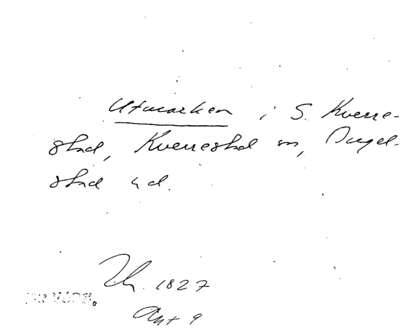 Utmarken i S. Kverre-
stad, Kverrestad sn, Ingel-
stad hd.
Th. 1827
Akt 9